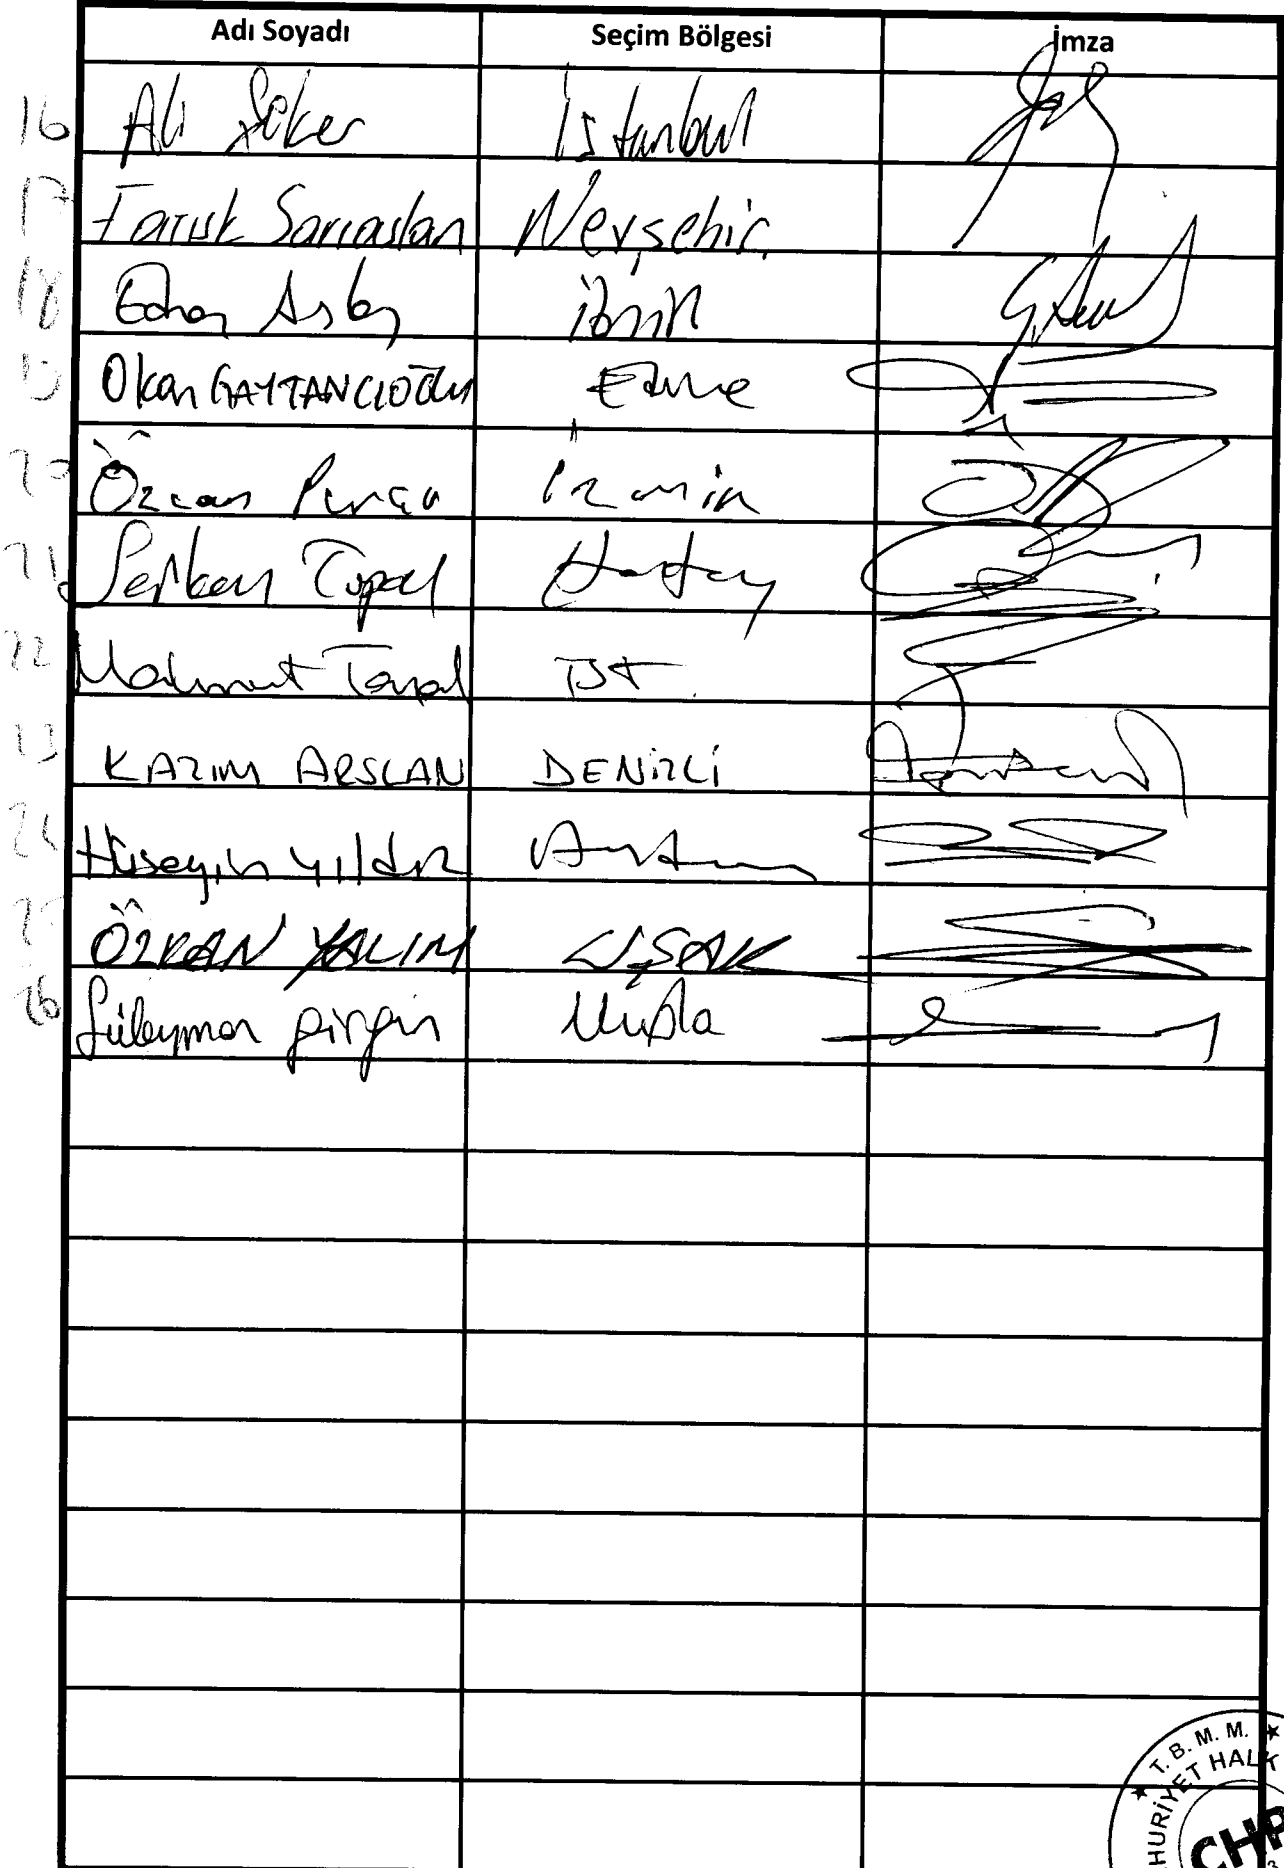 Adı Soyadı Seçim Bölgesi İmza
16 Ali Şeker İstanbul
17 Faruk Sarıaslan Nevşehir
18 Ednan Arslan İzmir
19 Okan GAYTANCIOĞLU Edirne
20 Özcan Purçu İzmir
21 Serkan Topal Hatay
22 Mahmut Tanal İST
23 KAZIM ARSLAN DENİZLİ
24 Hüseyin Yıldız Aydın
25 ÖZKAN YALIM UŞAK
26 Süleyman Girgin Muğla
★ T. B. M. M. ★
HURİYET HALK
CHP